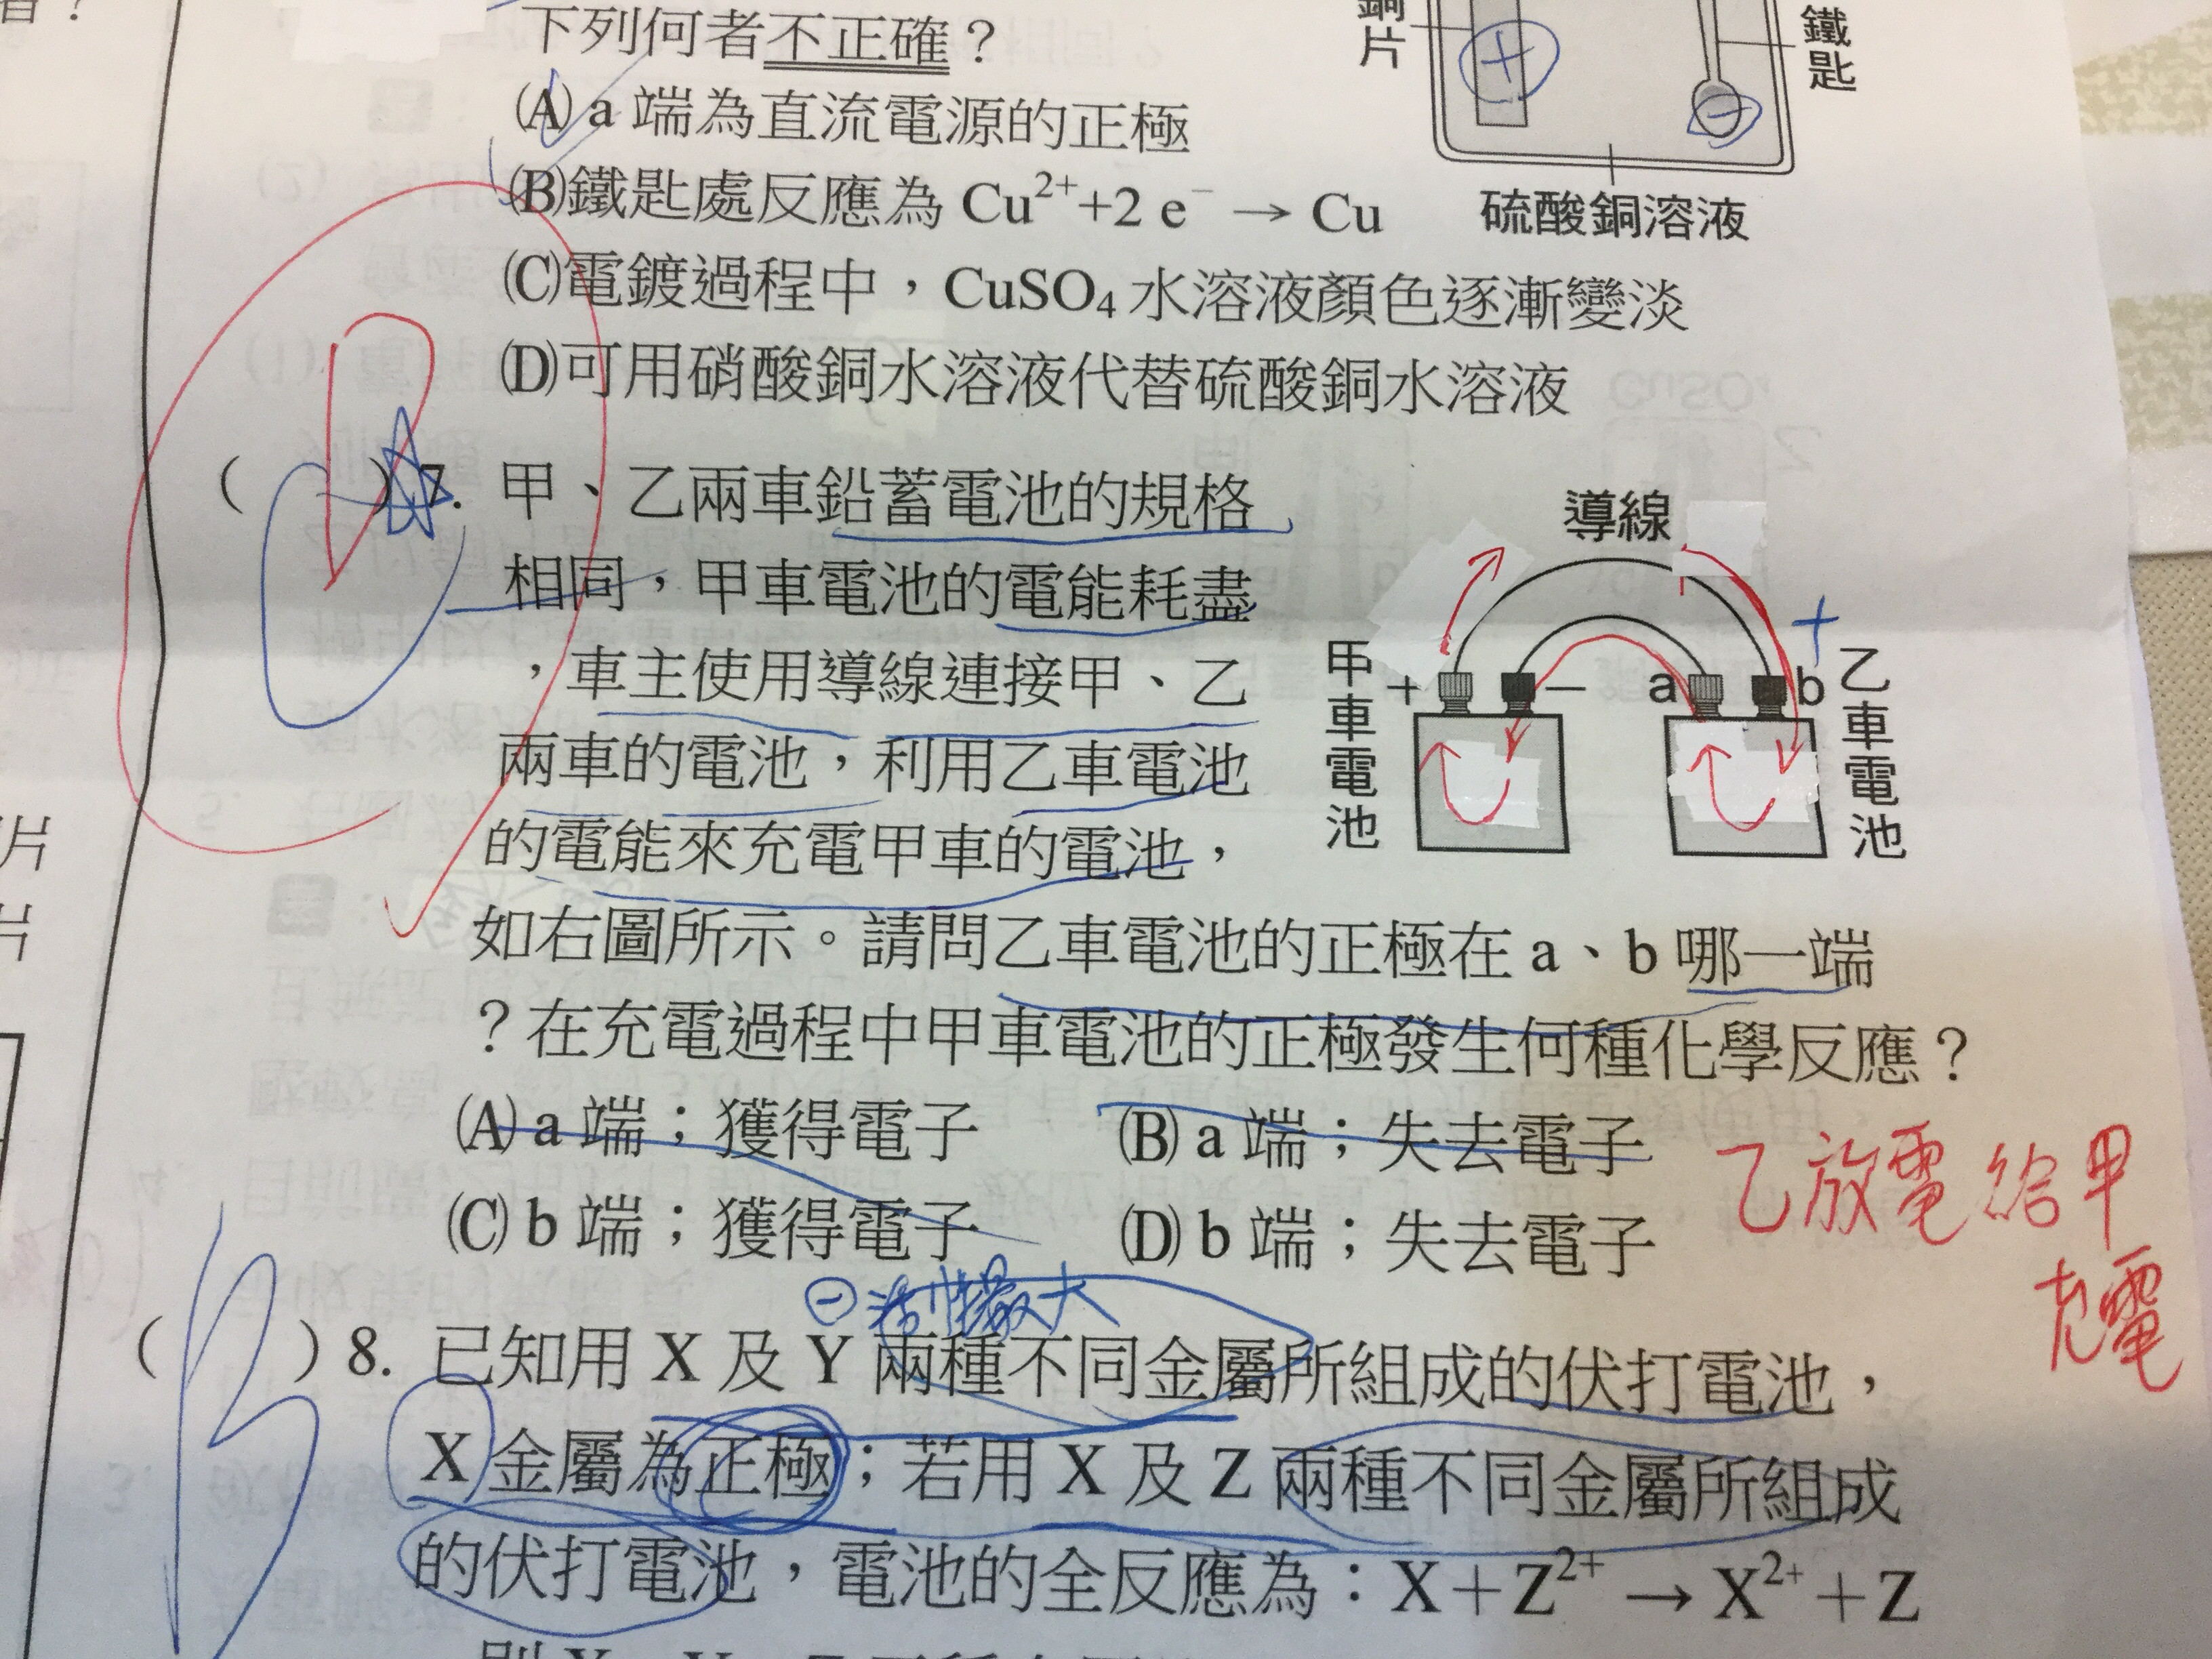 下列何者不正確？
(A) a 端為直流電源的正極
(B)鐵匙處反應為 Cu²⁺+2 e⁻ → Cu
(C)電鍍過程中，CuSO₄ 水溶液顏色逐漸變淡
(D)可用硝酸銅水溶液代替硫酸銅水溶液
銅片
+
鐵匙
−
硫酸銅溶液
( )7. 甲、乙兩車鉛蓄電池的規格
相同，甲車電池的電能耗盡
，車主使用導線連接甲、乙
兩車的電池，利用乙車電池
的電能來充電甲車的電池，
如右圖所示。請問乙車電池的正極在 a、b 哪一端
？在充電過程中甲車電池的正極發生何種化學反應？
導線
甲車電池
+
−
a
b
+
乙車電池
(A) a 端；獲得電子 (B) a 端；失去電子
(C) b 端；獲得電子 (D) b 端；失去電子
乙放電給甲
充電
D
⊖活性最大
( )8. 已知用 X 及 Y 兩種不同金屬所組成的伏打電池，
X 金屬為正極；若用 X 及 Z 兩種不同金屬所組成
的伏打電池，電池的全反應為：X＋Z²⁺ → X²⁺＋Z
片
片